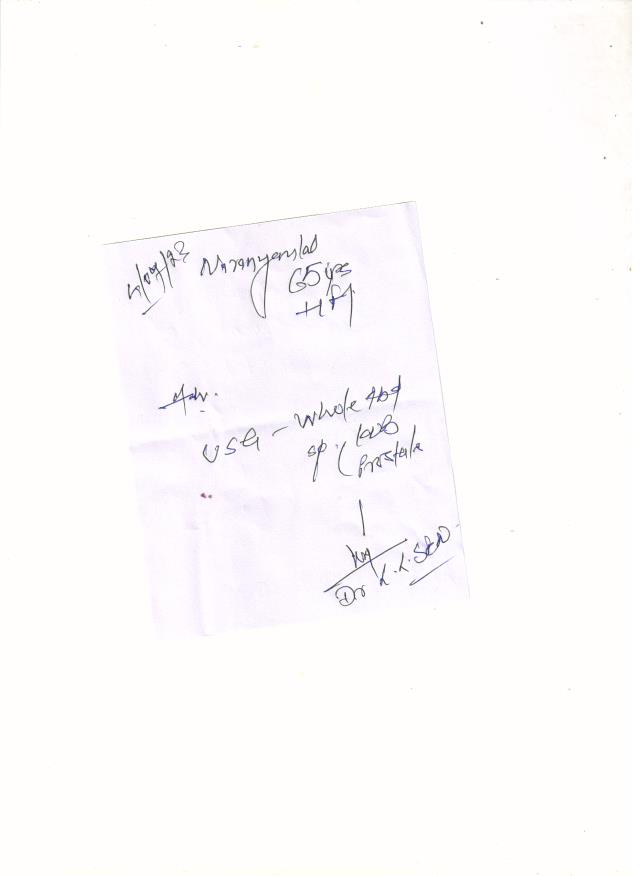 Narayanlal
65 yrs
Adv.
USG - Whole Abd
sp. ( KUB
Prostate
Dr K.L. SEN